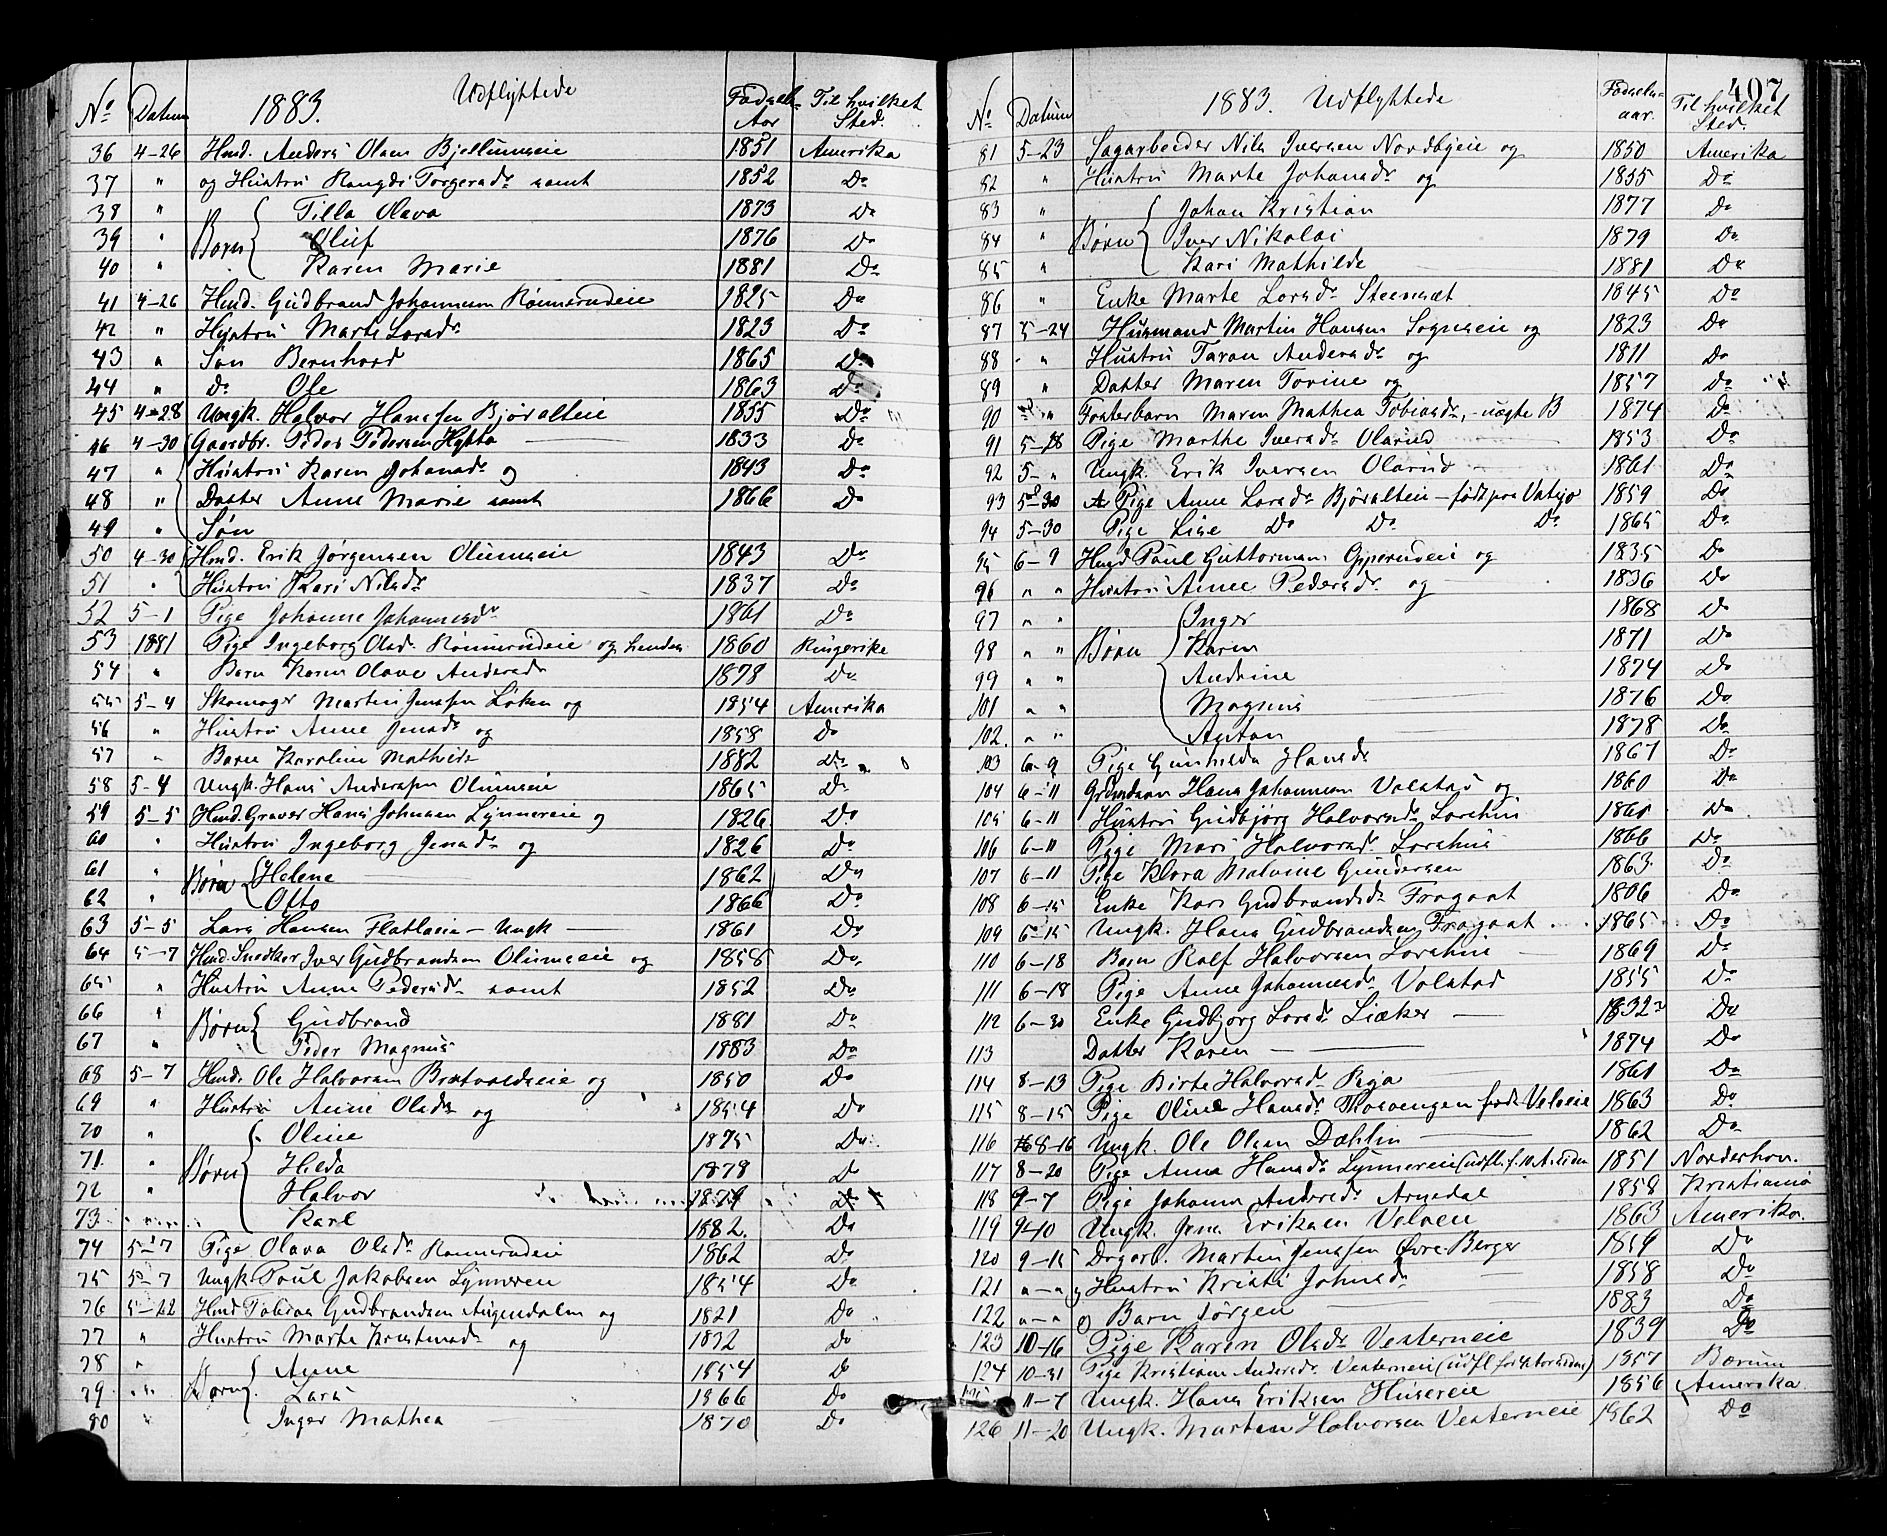 1883. Udflyttede
No Datum Fødsels Aar Til hvilket Sted.
36 4-26 Hmd. Anders Olsen Bjellumseie 1851 Amerika
37 " og Hustru Rangdi Torgersdr samt 1852 Do
38 " Tilla Olava 1873 Do
39 " Børn Oluf 1876 Do
40 " Karen Marie 1881 Do
41 4-26 Hmd. Gudbrand Johannesen Rönnerudeie 1825 Do
42 " Hustru Marte Larsdr 1823 Do
43 " Søn Bernhard 1865 Do
44 " do Ole 1863 Do
45 4-28 Ungk. Halvor Hanssen Bjøralteie 1855 Do
46 4-30 Gaardbr. Peder Pedersen Hytta 1833 Do
47 " Hustru Karen Johansdr og 1843 Do
48 " Datter Anne Marie samt 1866 Do
49 " Søn
50 4-30 Hmd. Erik Jørgensen Olumseie 1843 Do
51 " Hustru Kari Nilsdr 1837 Do
52 5-1 Pige Johanne Johannesdr 1861 Do
53 1881 Pige Ingeborg Olsd. Rönnerudeie og hendes 1860 Ringerike
54 " Barn Karen Olave Andersdr 1878 Do
55 5-4 Skomager Martin Jenssen Løken og 1854 Amerika
56 " Hustru Anne Jensdr og 1858 Do
57 " Barn Karoline Mathilde 1882 Do
58 5-4 Ungk. Hans Anderssen Olumseie 1865 Do
59 5-5 Hmd. Graver Hans Johnsen Lynnereie og 1826 Do
60 " Hustru Ingeborg Jensdr og 1826 Do
61 " Børn Helene 1862 Do
62 " Otto 1866 Do
63 5-5 Lars Hansen Flatlaeie - Ungk 1861 Do
64 5-7 Hmd. Snedker Iver Gudbrandsen Olumseie og 1858 Do
65 " Hustru Anne Pedersdr samt 1852 Do
66 " Børn Gudbrand 1881 Do
67 " Peder Magnus 1883 Do
68 5-7 Hmd. Ole Halvorsen Bratvoldseie og 1850 Do
69 " Hustru Anne Olsdr og 1854 Do
70 " Oline 1875 Do
71 " Børn Hilda 1878 Do
72 " Halvor 1879 Do
73 " Karl 1882. Do
74 5-7 Pige Olava Olsdr Rönnerudeie 1862 Do
75 5-7 Ungk Paul Jakobsen Lynneren 1854 Do
76 5-22 Hmd Tobias Gudbrandsen Augendalen og 1821 Do
77 " Hustru Marte Kristensdr og 1832 Do
78 " Anne 1854 Do
79 " Børn Lars 1866 Do
80 " Inger Mathea 1870 Do
407
1883. Udflyttede
No. Datum Fødsels-aar. Til hvilket Sted.
81 5-23 Sagarbeider Nils Iversen Nordbyeie og 1850 Amerika
82 " Hustru Marte Johansdr og 1855 Do
83 " Johan Kristian 1877 Do
84 " Børn Iver Nikolai 1879 Do
85 " Kari Mathilde 1881 Do
86 " Enke Marte Larsdr Steensæt 1845 Do
87 5-24 Husmand Martin Hansen Sognseie og 1823 Do
88 " Hustru Taran Andersdr og 1811 Do
89 " Datter Maren Torine og 1857 Do
90 " Fosterbarn Maren Mathea Tobiasdr, - uægte B 1874 Do
91 5-18 Pige Marthe Iversdr Olarud 1853 Do
92 5- " Ungk. Erik Iversen Olarud 1861 Do
93 5-30 Pige Anne Larsdr Bjøralteie - født paa Vatsjø 1859 Do
94 5-30 Pige Lise Do Do Do 1865 Do
95 6-9 Hmd Paul Guttormsen Opperudeie og 1835 Do
96 " " Hustru Anne Pedersdr og 1836 Do
97 " " Inger 1868 Do
98 " " Børn Karen 1871 Do
99 " " Andrine 1874 Do
101 " " Magnus 1876 Do
102. " " Anton 1878 Do
103 6-9 Pige Gunhilda Hansdr 1867 Do
104 6-11 Grdmdsøn Hans Johannesen Volstad og 1860 Do
105 6-11 Hustru Gudbjørg Halvorsdr Lorehus 1861 Do
106 6-11 Pige Mari Halvorsdr Lorehus 1866 Do
107 6-11 Pige Klara Malvine Gundersen 1863 Do
108 6-15 Enke Kari Gudbrandsdr Fragaat 1806 Do
109 6-15 Ungk. Hans Gudbrandsen Fragaat 1865 Do
110 6-18 Barn Rolf Halvorsen Lorehus 1869 Do
111 6-18 Pige Anne Johannesdr Volstad 1855 Do
112 6-30 Enke Gudbjørg Larsdr Liæker 1832 Do
113 Datter Karen 1874 Do
114 8-13 Pige Birte Halvorsdr 1861 Do
115 8-15 Pige Oline Hansdr født Velseie 1863 Do
116 8-16 Ungk. Ole Olsen Dæhlin 1862 Do
117 8-20 Pige Anna Hansdr Lynnereie (udfl. f. 10 A. siden 1851 Norderhov.
118 9-7 Pige Johanne Andersdr Arnedal 1858 Kristiania
119 9-10 Ungk. Jens Eriksen Velsen 1863 Amerika.
120 9-15 Dagarb. Martin Jenssen Øvre Berger 1859 Do
121 " - " og Hustru Kristi Johnsdr 1858 Do
122 " - " og Barn Jørgen 1883 Do
123 10-16 Pige Karen Olsdr Vesterneie 1839 Do
124 10-31 Pige Kristiane Andersdr Vesterneie (udfl. for siden) 1857 Bærum
125 11-7 Ungk. Hans Eriksen Husereie 1856 Amerika
126 11-20 Ungk. Martin Halvorsen Vesterneie 1862 Do